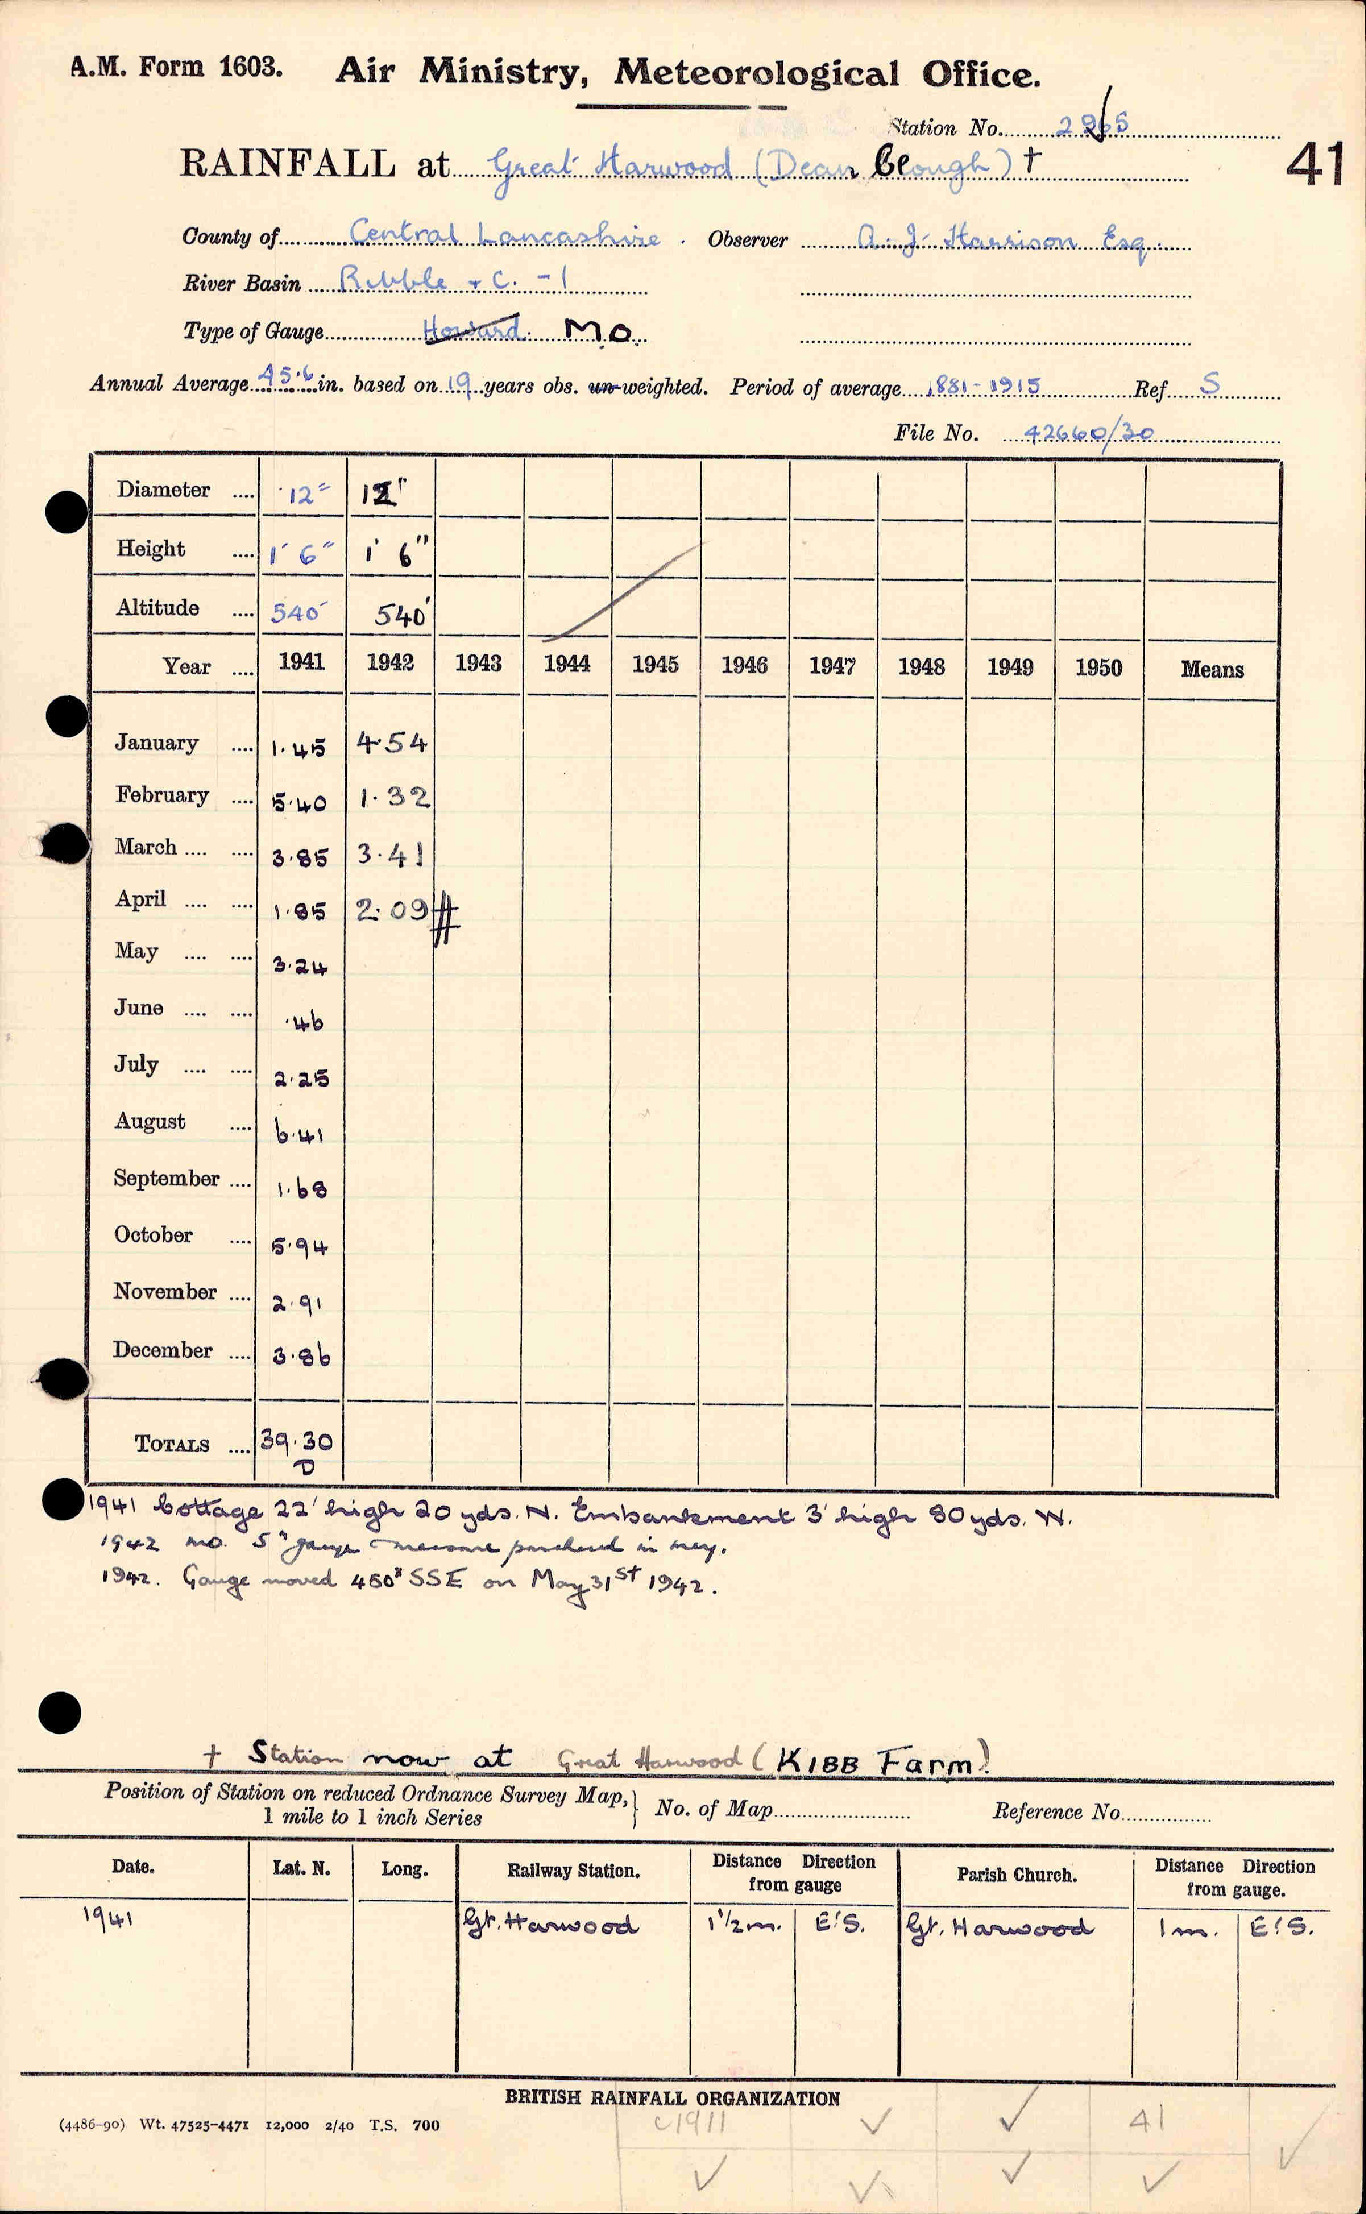 A.M. Form 1603. Air Ministry, Meteorological Office.
Station No. 2965
RAINFALL at Great Harwood (Dean Clough) † 41
County of Central Lancashire. Observer A. J. Harrison Esq.
River Basin Ribble + C. - 1
Type of Gauge Howard M.O.
Annual Average 45.6 in. based on 19 years obs. un-weighted. Period of average 1881-1915 Ref S
File No. 42660/30
Diameter .... 12" 12"
Height .... 1' 6" 1' 6"
Altitude .... 540' 540'
Year .... 1941 1942 1943 1944 1945 1946 1947 1948 1949 1950 Means
January .... 1.45 4.54
February .... 5.40 1.32
March .... .... 3.85 3.41
April .... .... 1.85 2.09 #
May .... .... 3.24
June .... .... .46
July .... .... 2.25
August .... 6.41
September .... 1.68
October .... 5.94
November .... 2.91
December .... 3.86
TOTALS .... 39.30
D
1941 Cottage 22' high 20 yds. N. Embankment 3' high 80 yds. W.
1942 MO. 5" gauge measure purchased in May.
1942. Gauge moved SSE on May 31st 1942.
† Station now at Great Harwood (KIBB Farm)
Position of Station on reduced Ordnance Survey Map, } No. of Map Reference No.
1 mile to 1 inch Series
Date. Lat. N. Long. Railway Station. Distance Direction from gauge Parish Church. Distance Direction from gauge.
1941 Gt. Harwood 1½ m. E'S. Gt. Harwood 1 m. E'S.
BRITISH RAINFALL ORGANIZATION
(4486-90) Wt. 47525-4471 12,000 2/40 T.S. 700
c1911 ✓ ✓ 41 ✓
✓ ✓ ✓ ✓